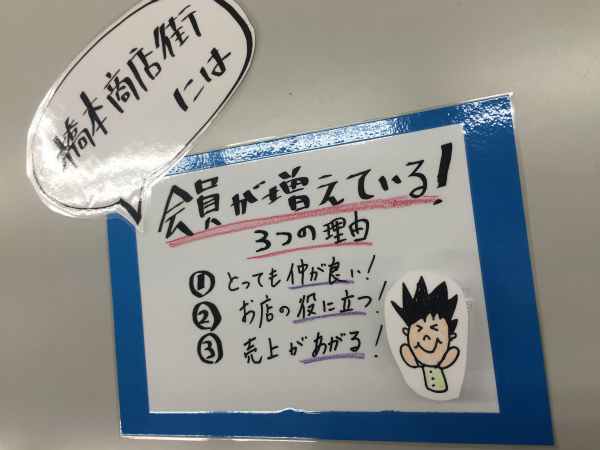 橋本商店街
には
会員が増えている!
3つの理由
① とっても仲が良い!
② お店の役に立つ!
③ 売上があがる!